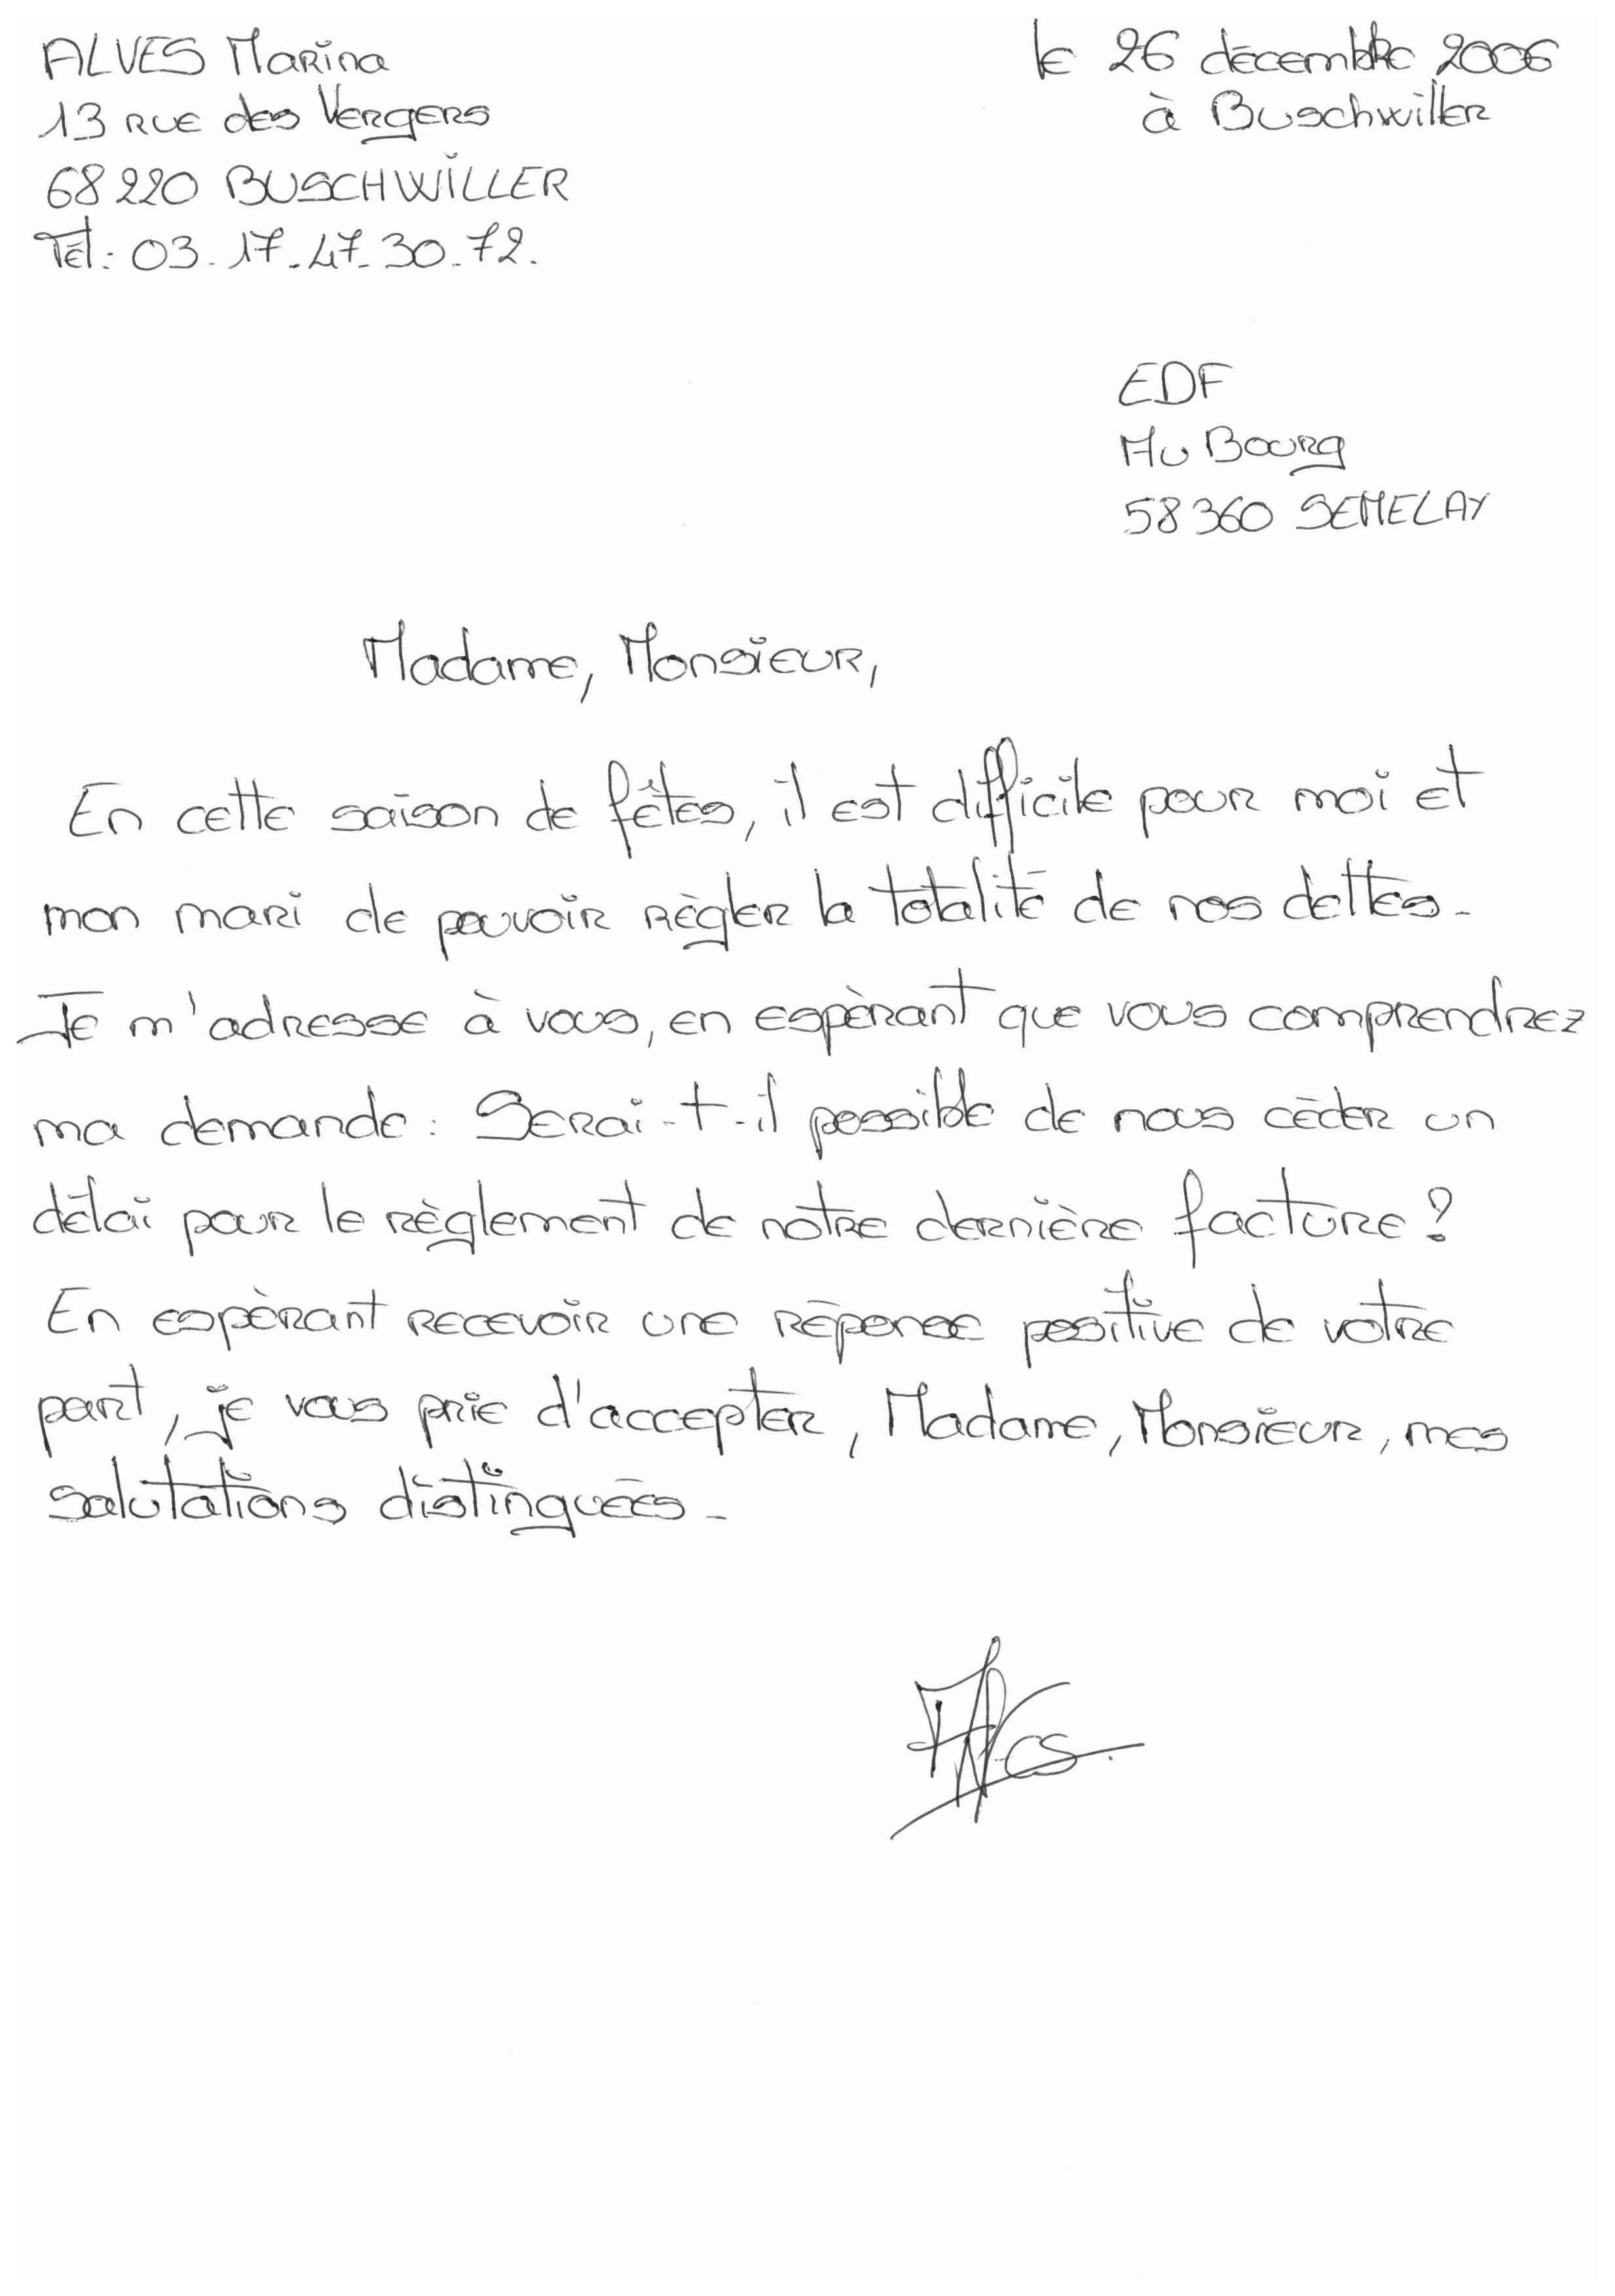 ALVES Marina
13 rue des Vergers
68220 BUSCHWILLER
Tél: 03.17.47.30.72.
le 26 décembre 2006
à Buschwiller
EDF
Au Bourg
58360 SEMELAY
Madame, Monsieur,
En cette saison de fêtes, il est difficile pour moi et
mon mari de pouvoir règler la totalité de nos dettes.
Je m'adresse à vous, en espèrant que vous comprendrez
ma demande : Serai-t-il possible de nous cèder un
délai pour le règlement de notre dernière facture ?
En espèrant recevoir une réponse positive de votre
part, je vous prie d'accepter, Madame, Monsieur, mes
salutations distinguées.
Alves.